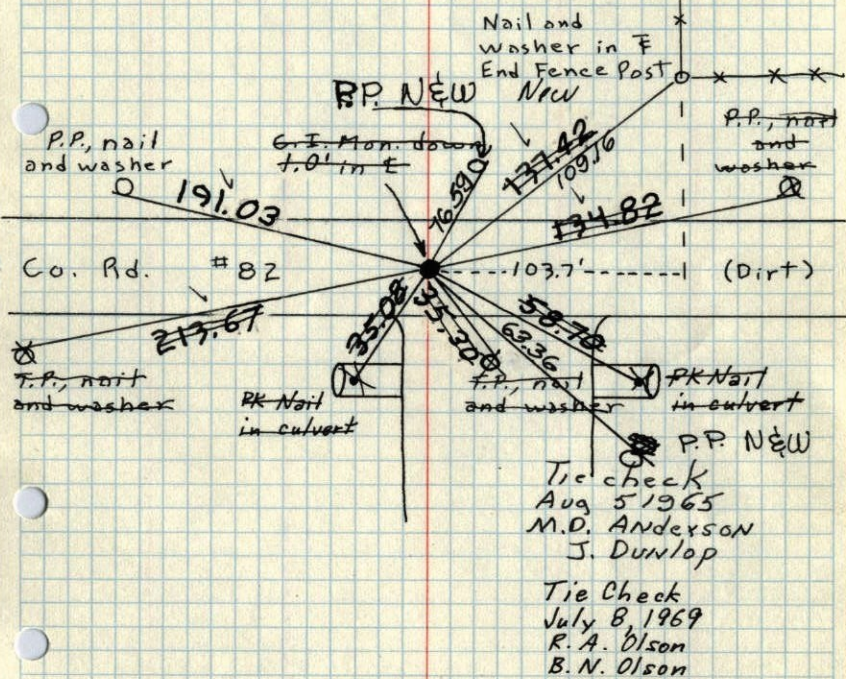 Nail and
washer in E
End Fence Post
P.P. N&W
New
P.P., nail
and washer
G.I. Mon. down
1.0' in E
P.P., nail
and
washer
191.03
76.59
137.42
109.16
134.82
Co. Rd. #82
103.7'
(Dirt)
213.67
35.08
35.30
58.70
63.36
T.P., nail
and washer
PK Nail
in culvert
T.P., nail
and washer
PK Nail
in culvert
P.P. N&W
Tie check
Aug 5 1965
M.D. Anderson
J. Dunlop
Tie Check
July 8, 1969
R. A. Olson
B. N. Olson